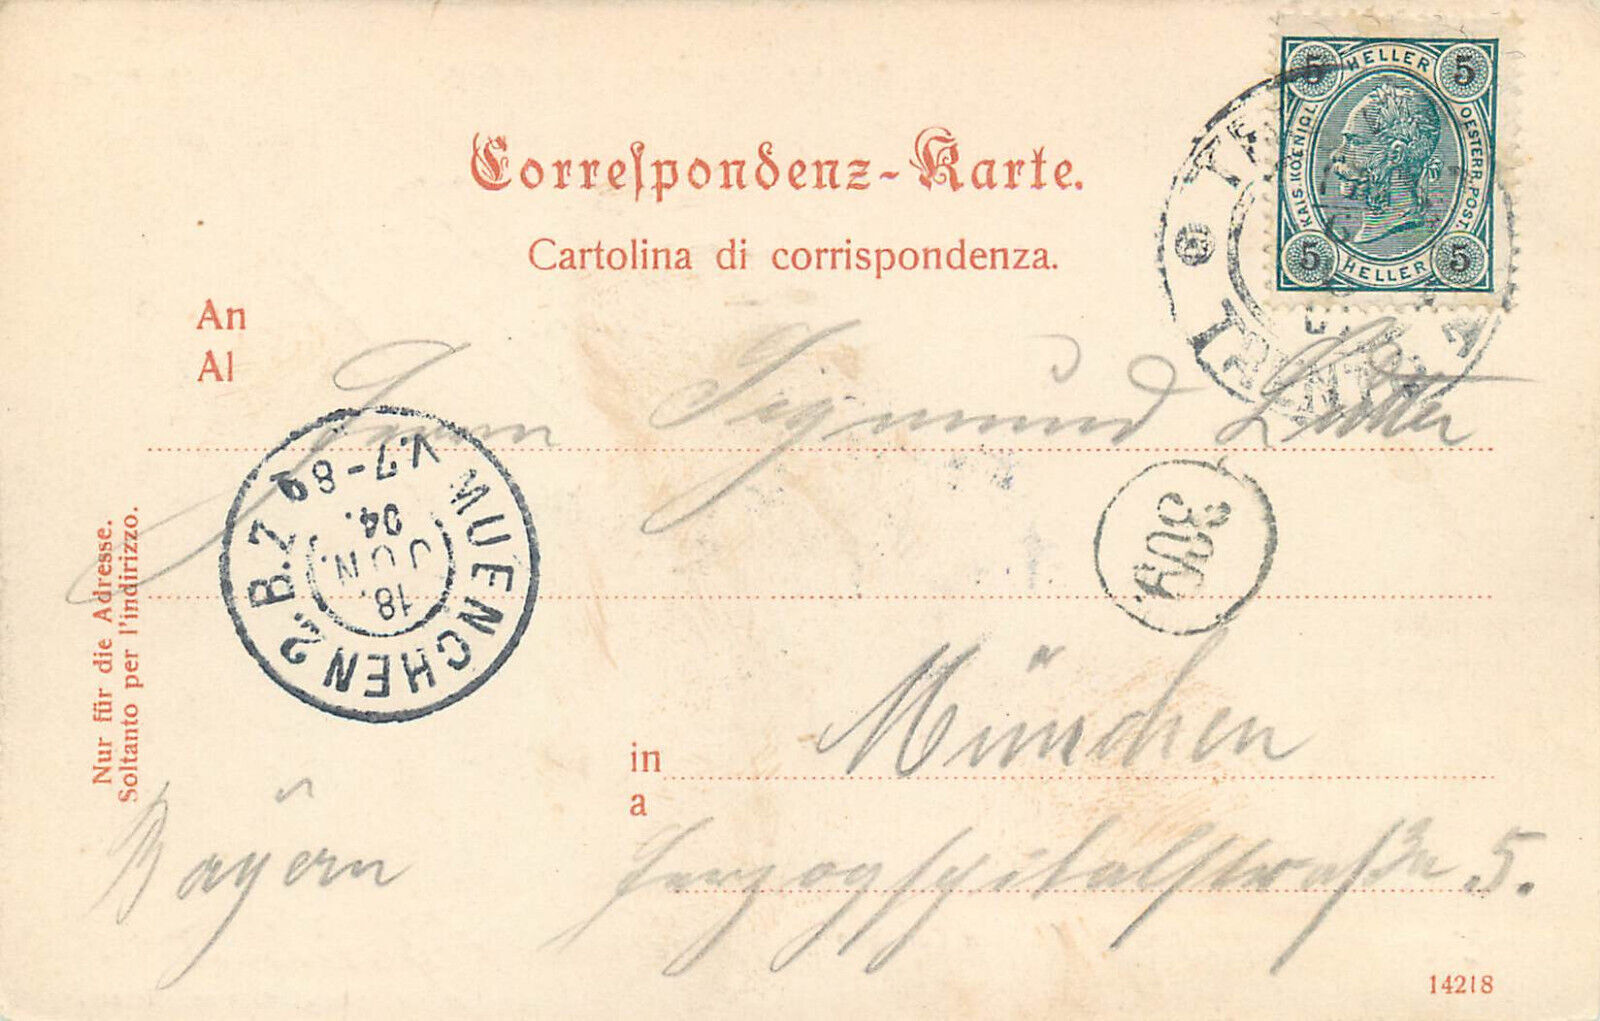 5 HELLER 5
KAIS. KOENIGL. OESTERR. POST.
5 HELLER 5
Correspondenz-Karte.
Cartolina di corrispondenza.
An
Al
Herrn Sigmund
MUENCHEN 2. B.Z.
18.
JUN.
04.
V. 7-8a
TRI TRENT
Nur für die Adresse.
Soltanto per l'indirizzo.
in München
a
Bayern Herzogspitalstraße 5.
14218